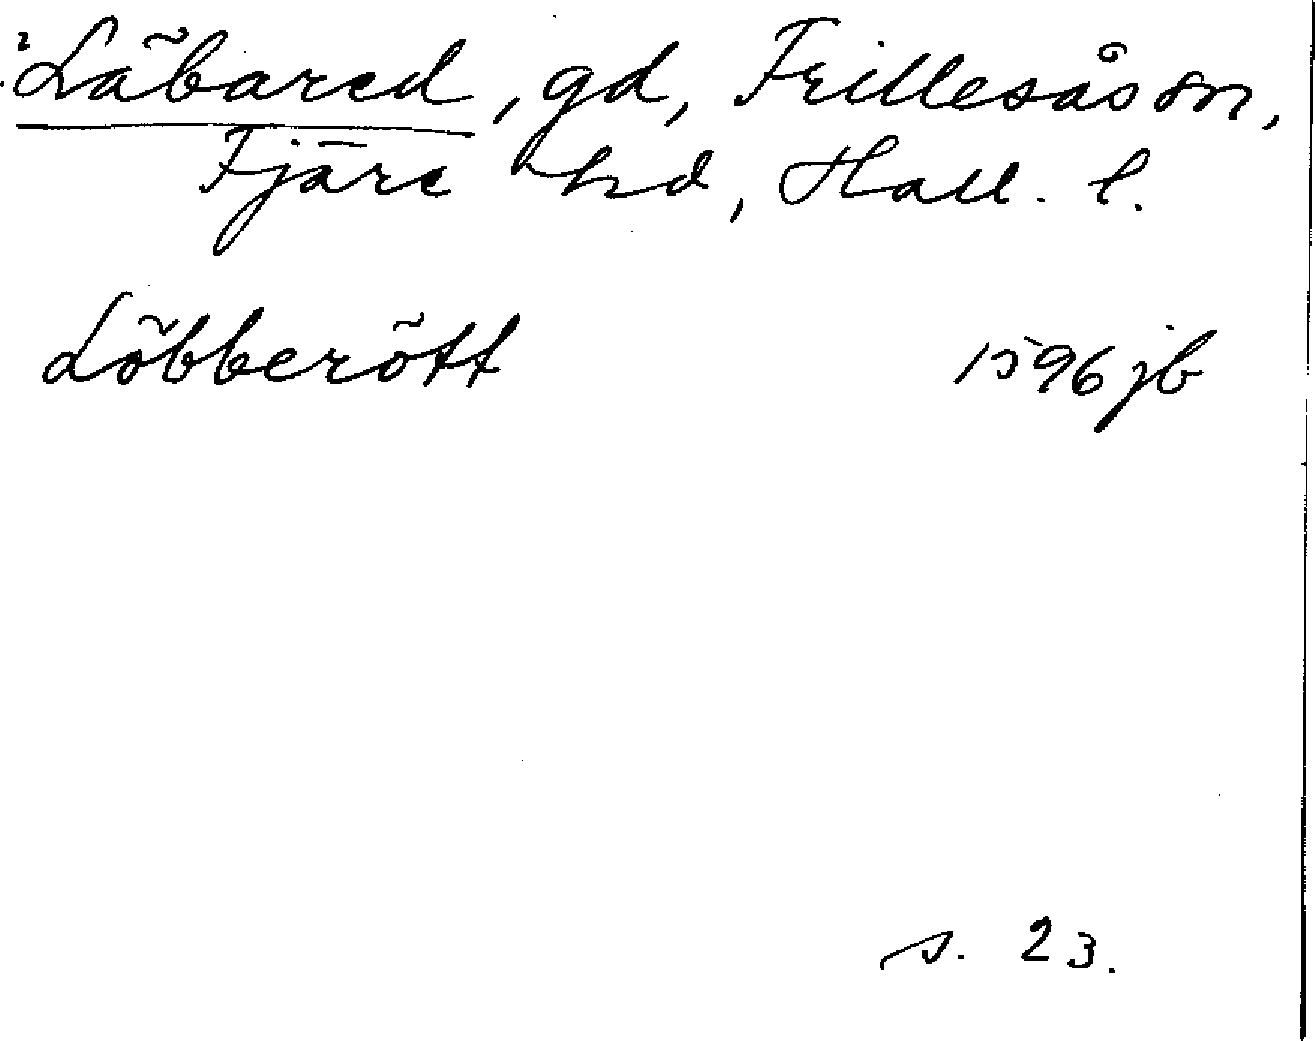 Läbared, gd, Frillesås sn,
Fjäre hd, Hall. l.
Löbberött 1596 jb
s. 23.